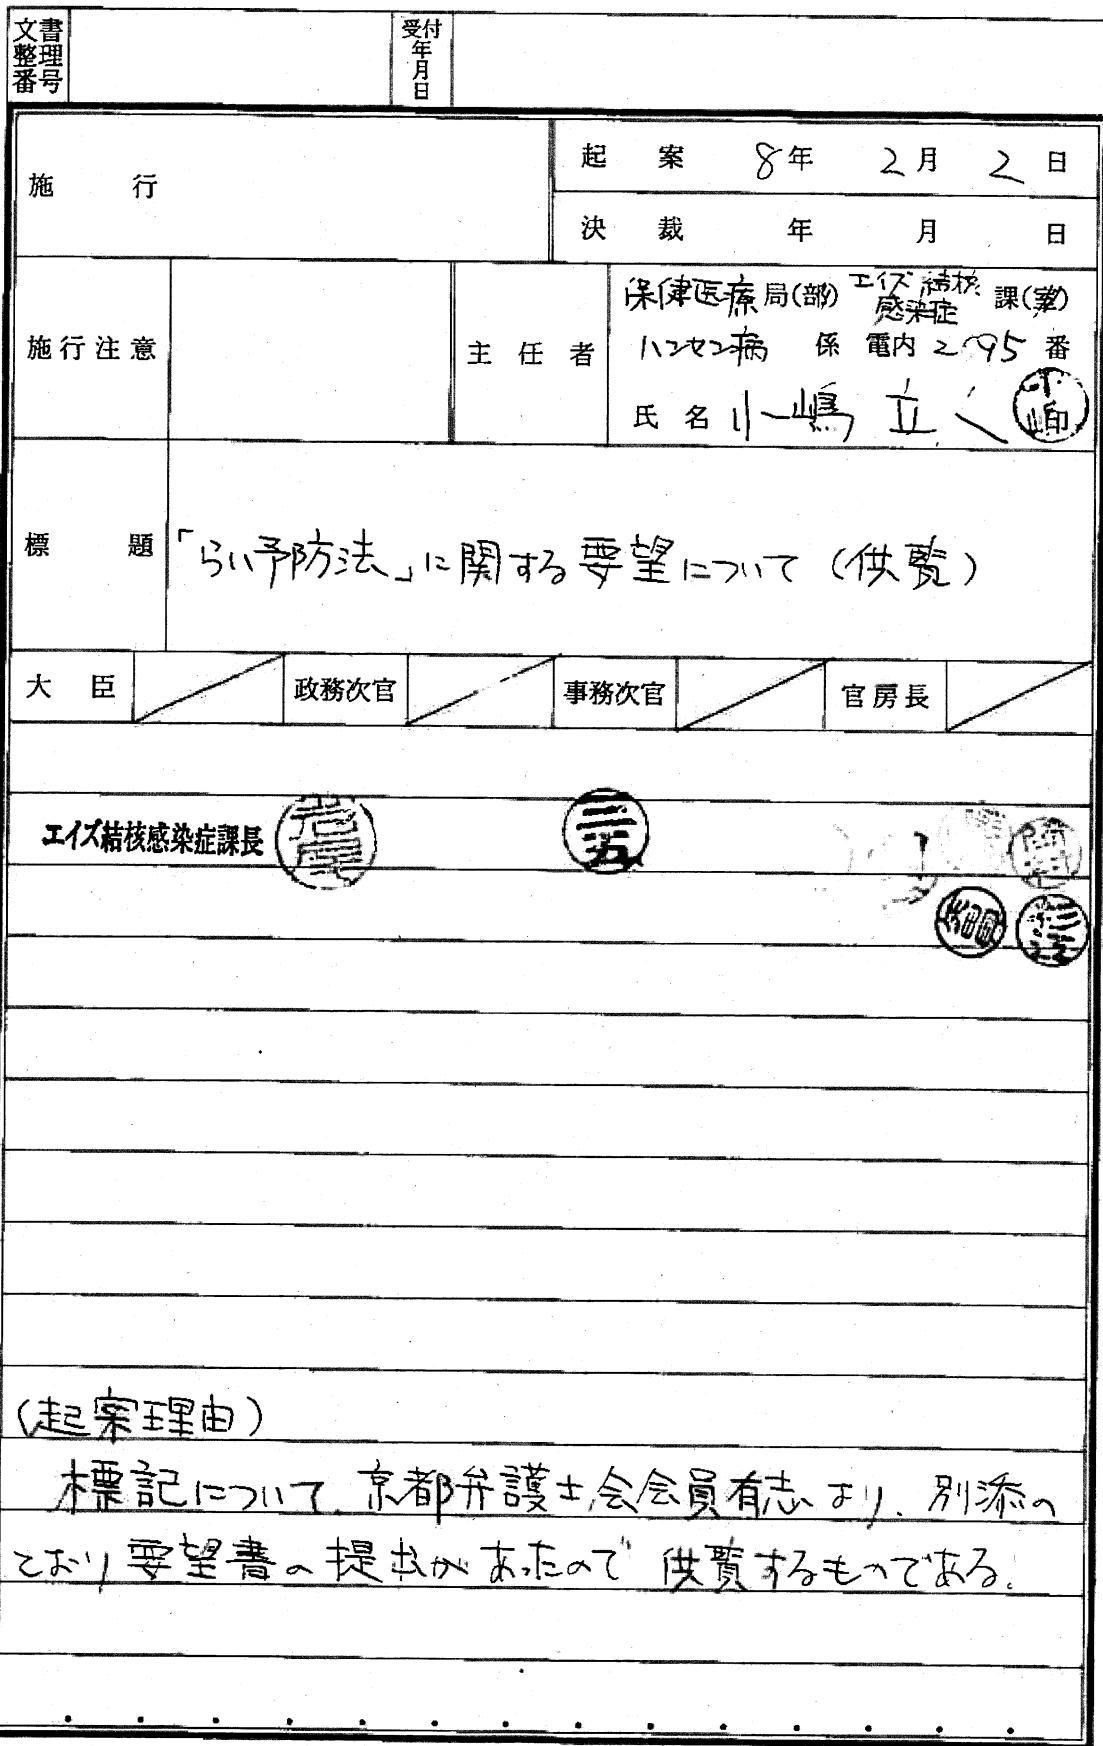 文書整理番号
受付年月日
施行
起案 8年 2月 2日
決裁 年 月 日
施行注意
主任者
保健医療局(部) エイズ結核感染症課(室)
ハンセン病 係 電内 番
氏名 小嶋 立
標題
「らい予防法」に関する要望について(供覧)
大臣
政務次官
事務次官
官房長
エイズ結核感染症課長
(起案理由)
標記について、京都弁護士会会員有志より、別添の
とおり要望書の提出があったので供覧するものである。